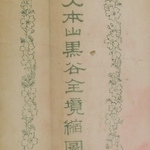 大本山黒谷全境縮圖